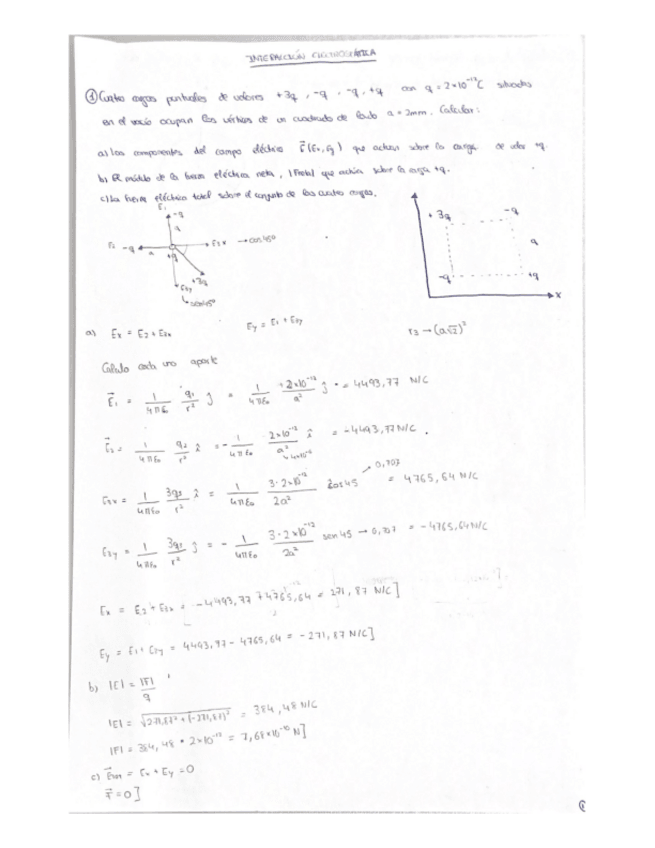 INTERACCIÓN ELECTROSTÁTICA
① Cuatro cargas puntuales de valores +3q, -q, -q, +q con q = 2×10⁻¹² C situadas
en el vacío ocupan los vértices de un cuadrado de lado a = 2mm. Calcular:
a) Las componentes del campo eléctrico E⃗(Ex, Ey) que actúan sobre la carga de valor +q.
b) El módulo de la fuerza eléctrica neta, |Ftotal| que actúa sobre la carga +q.
c) La fuerza eléctrica total sobre el conjunto de las cuatro cargas.
E1
-q
a
E2 -q a +q E3x → cos45º
+3q
E3y
↳ sen45º
+3q -q
a
-q +q
x
a) Ex = E2 + E3x Ey = E1 + E3y r3 → (a√2)²
Calculo cada uno aparte
E⃗1 = 1/4πε0 q1/r² ĵ = 1/4πε0 2×10⁻¹²/a² ĵ = 4493,77 N/C
E⃗2 = 1/4πε0 q2/r² î = - 1/4πε0 2×10⁻¹²/a² î = -4493,77 N/C.
↳ 4×10⁻⁶
E3x = 1/4πε0 3q3/r² î = 1/4πε0 3·2×10⁻¹²/2a² cos45 → 0,707 = 4765,64 N/C
E3y = 1/4πε0 3q3/r² ĵ = - 1/4πε0 3·2×10⁻¹²/2a² sen45 → 0,707 = -4765,64 N/C
Ex = E2 + E3x = -4493,77 + 4765,64 = 271,87 N/C]
Ey = E1 + E3y = 4493,77 - 4765,64 = -271,87 N/C]
b) |E| = |F|/q
|E| = √271,87² + (-271,87)² = 384,48 N/C
|F| = 384,48 · 2×10⁻¹² = 7,68×10⁻¹⁰ N]
= Ex + Ey = 0
F⃗ = 0]